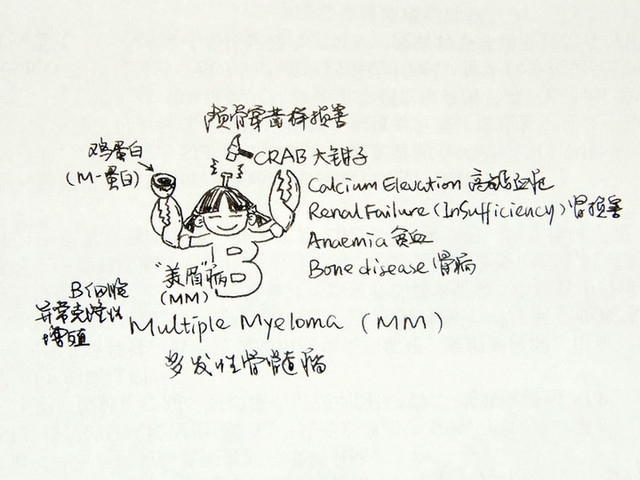 颅骨穿凿样损害
鸡蛋白
(M-蛋白)
CRAB 大钳子
Calcium Elevation 高钙血症
Renal Failure (Insufficiency) 肾损害
Anaemia 贫血
Bone disease 骨病
B
"美眉"病
(MM)
B细胞
异常克隆性
增殖
Multiple Myeloma (MM)
多发性骨髓瘤